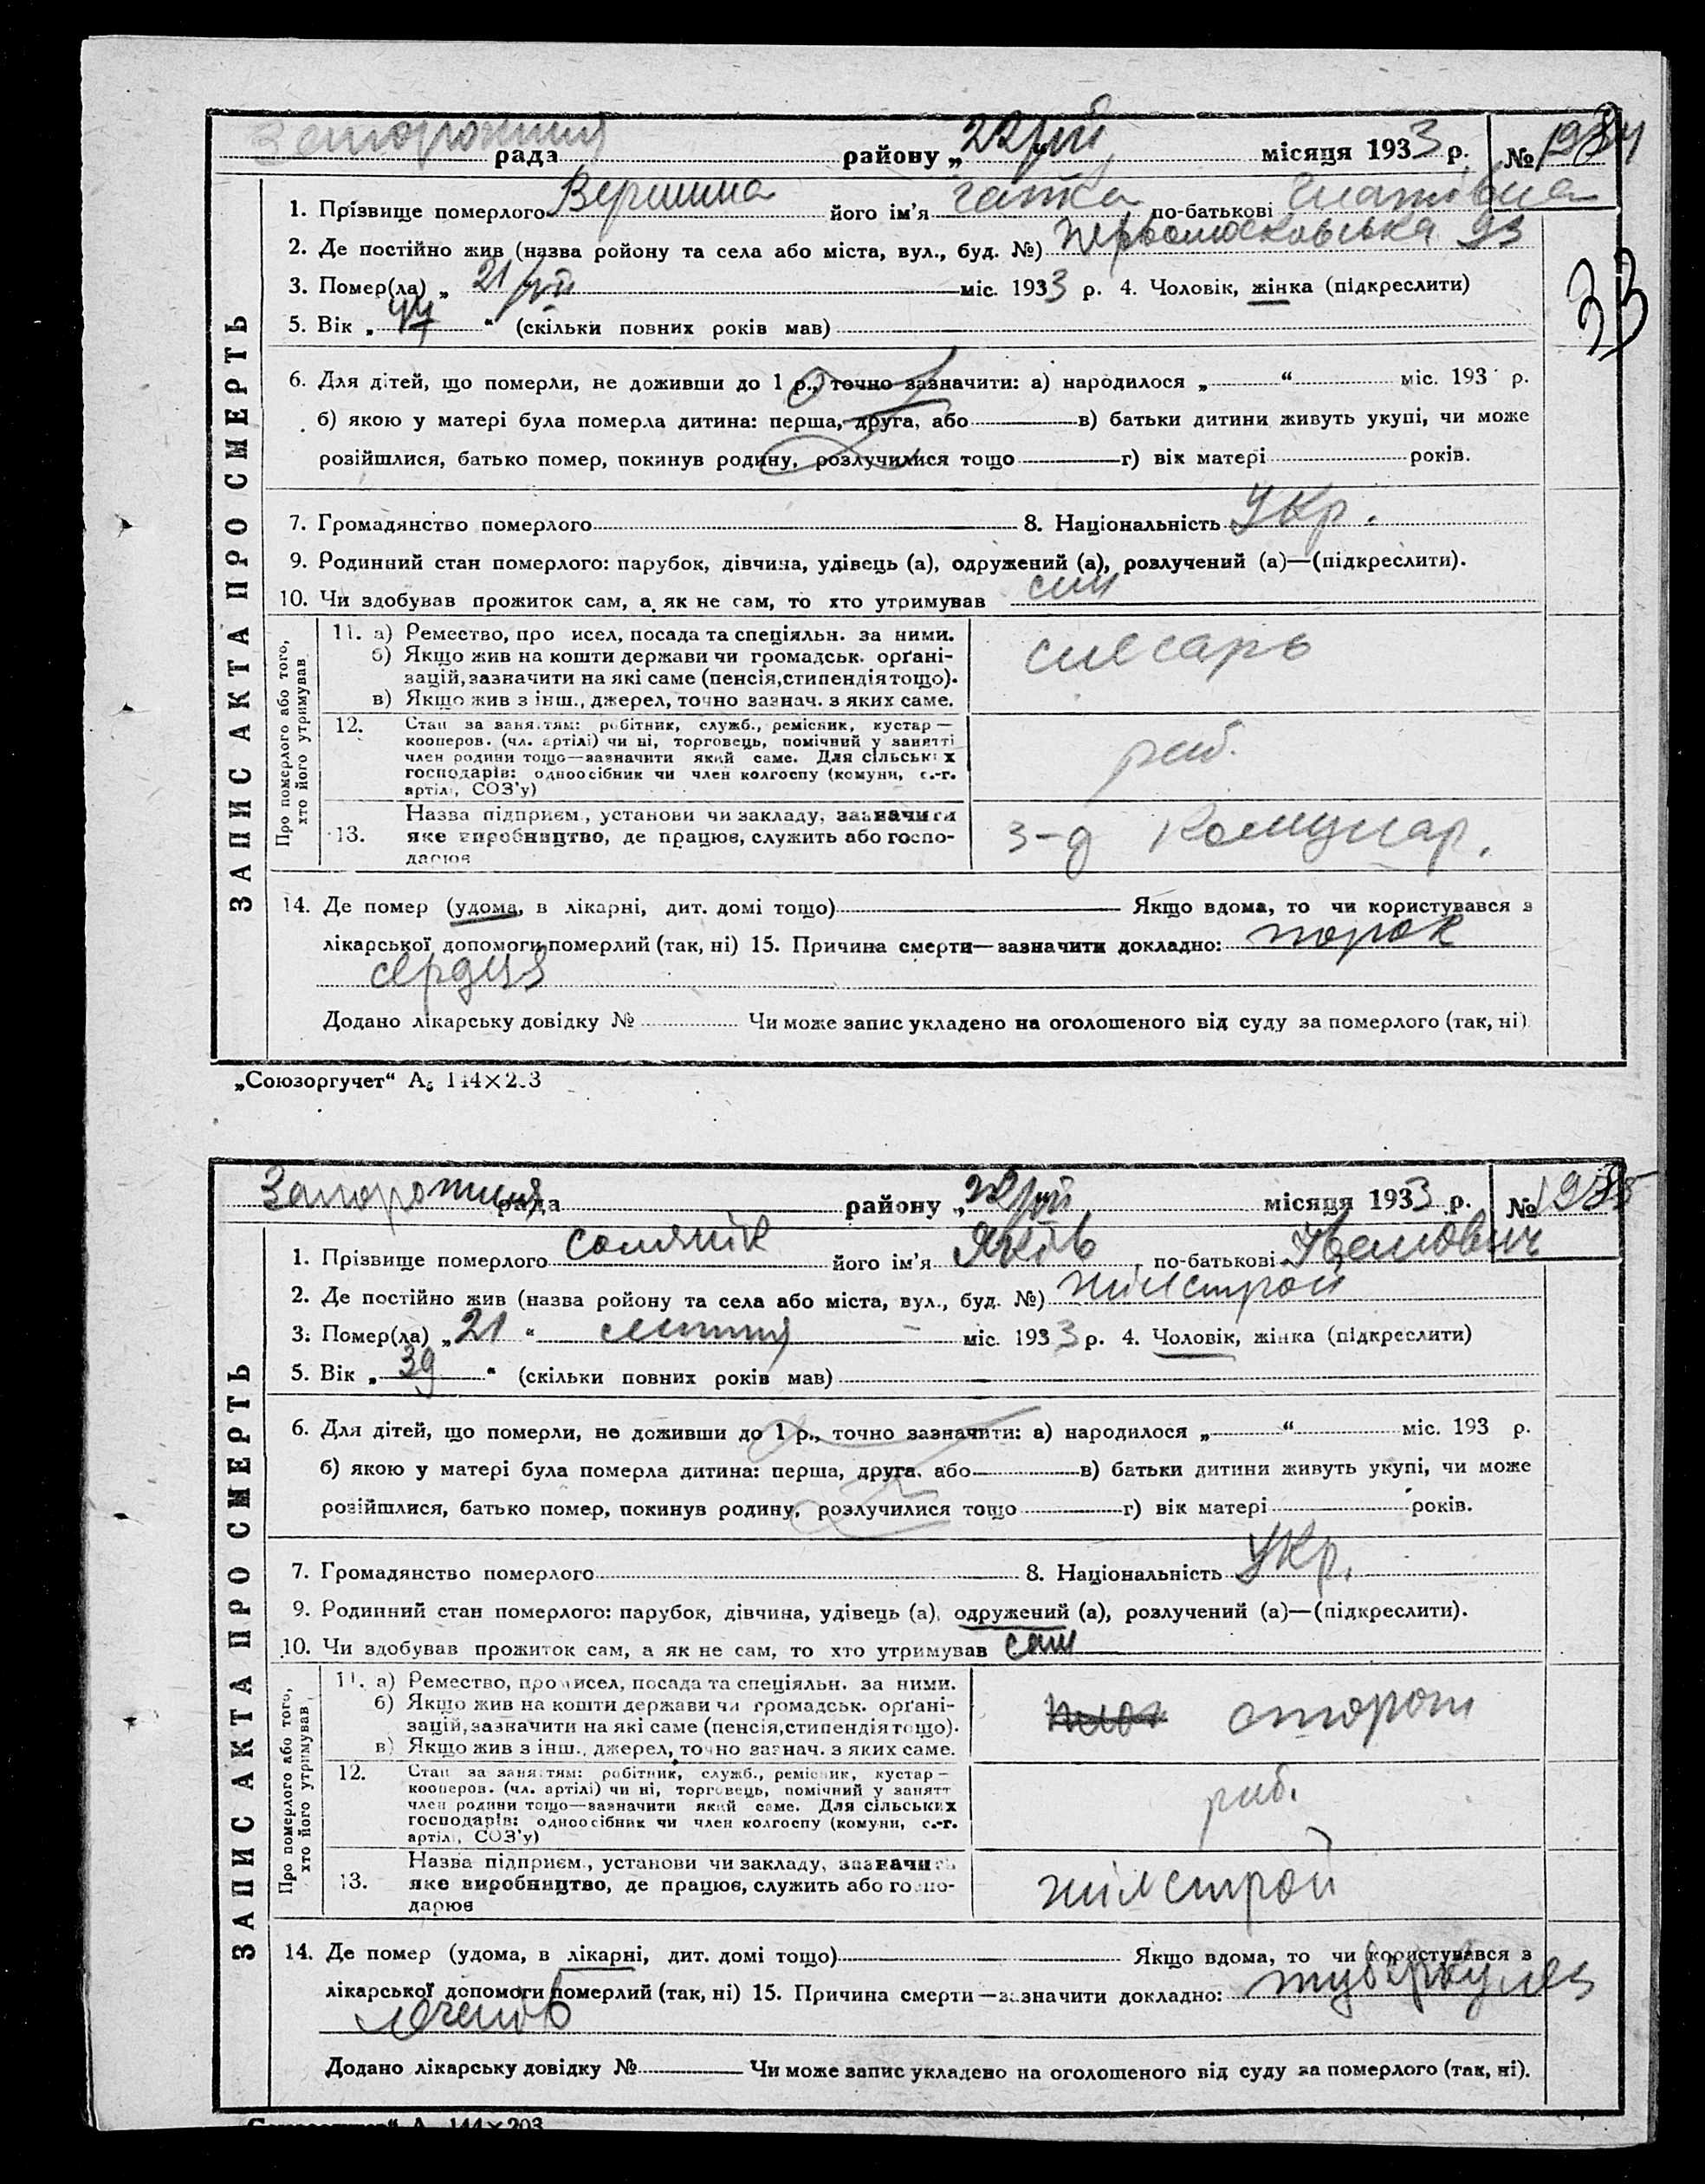 Запоріжжя рада району „ 22/VII місяця 1933 р. № 1984
1. Прізвище померлого Вершина його ім'я по-батькові Гнатівна
2. Де постійно жив (назва ройону та села або міста, вул., буд. №) 93
3. Помер(ла) „ 21/VII міс. 1933 р. 4. Чоловік, жінка (підкреслити)
33
5. Вік „ 44 “ (скільки повних років мав)
6. Для дітей, що померли, не доживши до 1 р., точно зазначити: а) народилося „ “ міс. 193 р.
б) якою у матері була померла дитина: перша, друга, або в) батьки дитини живуть укупі, чи може
розійшлися, батько помер, покинув родину, розлучилися тощо г) вік матері років.
7. Громадянство померлого 8. Національність Укр.
9. Родинний стан померлого: парубок, дівчина, удівець (а), одружений (а), розлучений (а)—(підкреслити).
10. Чи здобував прожиток сам, а як не сам, то хто утримував син
ЗАПИС АКТА ПРО СМЕРТЬ
Про померлого або того,
хто його утримував
11. а) Ремество, про исел, посада та спеціяльн. за ними.
б) Якщо жив на кошти держави чи громадськ. орґані-
зацій, зазначити на які саме (пенсія, стипендія тощо).
в) Якщо жив з інш., джерел, точно зазнач. з яких саме.
слесарь
12. Стан за заняттям: робітник, служб., ремісник, кустар—
кооперов. (чл. артілі) чи ні, торговець, помічний у занятті
член родини тощо—зазначити який саме. Для сільських
господарів: одноосібник чи член колгоспу (комуни, с.-г.
артілі, СОЗ'у)
раб.
13. Назва підприєм., установи чи закладу, зазначити
яке виробництво, де працює, служить або госпо-
дарює
з-д Комунар.
14. Де помер (удома, в лікарні, дит. домі тощо) Якщо вдома, то чи користувався з
лікарської допомоги померлий (так, ні) 15. Причина смерти—зазначити докладно: порок
сердця
Додано лікарську довідку № Чи може запис укладено на оголошеного від суду за померлого (так, ні)
„Союзоргучет“ А5 144×203
Запоріжжя рада району „ 22/VII місяця 1933 р. № 1985
1. Прізвище померлого Соляник його ім'я Яків по-батькові Іванович
2. Де постійно жив (назва ройону та села або міста, вул., буд. №) Жилстрой
3. Помер(ла) „ 21 “ липня міс. 1933 р. 4. Чоловік, жінка (підкреслити)
5. Вік „ 39 “ (скільки повних років мав)
6. Для дітей, що померли, не доживши до 1 р., точно зазначити: а) народилося „ “ міс. 193 р.
б) якою у матері була померла дитина: перша, друга, або в) батьки дитини живуть укупі, чи може
розійшлися, батько помер, покинув родину, розлучилися тощо г) вік матері років.
7. Громадянство померлого 8. Національність Укр.
9. Родинний стан померлого: парубок, дівчина, удівець (а), одружений (а), розлучений (а)—(підкреслити).
10. Чи здобував прожиток сам, а як не сам, то хто утримував сам
ЗАПИС АКТА ПРО СМЕРТЬ
Про померлого або того,
хто його утримував
11. а) Ремество, про исел, посада та спеціяльн. за ними.
б) Якщо жив на кошти держави чи громадськ. орґані-
зацій, зазначити на які саме (пенсія, стипендія тощо).
в) Якщо жив з інш., джерел, точно зазнач. з яких саме.
сторож
12. Стан за заняттям: робітник, служб., ремісник, кустар—
кооперов. (чл. артілі) чи ні, торговець, помічний у занятт
член родини тощо—зазначити який саме. Для сільських
господарів: одноосібник чи член колгоспу (комуни, с.-г.
артілі, СОЗ'у)
раб.
13. Назва підприєм., установи чи закладу, зазначить
яке виробництво, де працює, служить або госпо-
дарює
жилстрой
14. Де помер (удома, в лікарні, дит. домі тощо) Якщо вдома, то чи користувався з
лікарської допомоги померлий (так, ні) 15. Причина смерти—зазначити докладно: туберкулез
легенів
Додано лікарську довідку № Чи може запис укладено на оголошеного від суду за померлого (так, ні).
„Союзоргучет“ А 144×203